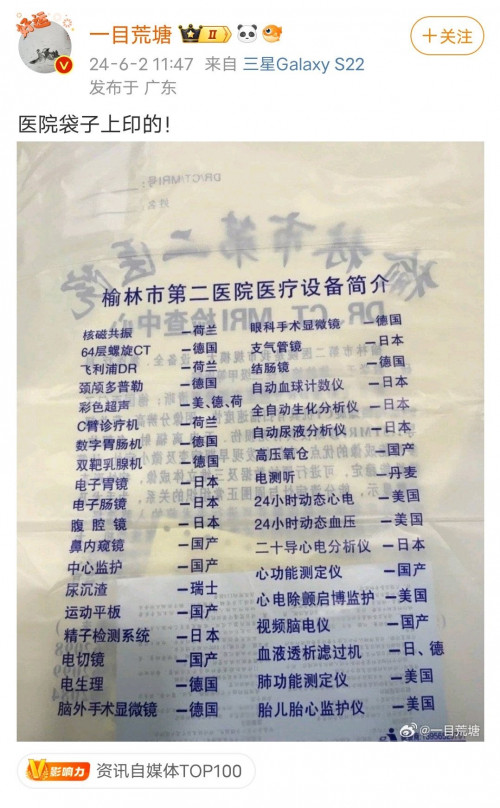 一目荒塘 II
24-6-2 11:47 来自 三星Galaxy S22
发布于 广东
+关注
医院袋子上印的！
DR/CT/MRI号:
姓名:
榆林市第二医院
DR、CT、MRI检查中心
榆林市第二医院医疗设备简介
核磁共振 一荷兰
64层螺旋CT 一德国
飞利浦DR 一荷兰
颈颅多普勒 一德国
彩色超声 一美、德、荷
C臂诊疗机 一荷兰
数字胃肠机 一德国
双靶乳腺机 一德国
电子胃镜 一日本
电子肠镜 一日本
腹腔镜 一日本
鼻内窥镜 一国产
中心监护 一国产
尿沉渣 一瑞士
运动平板 一国产
精子检测系统 一日本
电切镜 一国产
电生理 一德国
脑外手术显微镜 一德国
眼科手术显微镜 一德国
支气管镜 一日本
结肠镜 一德国
自动血球计数仪 一日本
全自动生化分析仪 一日本
自动尿液分析仪 一日本
高压氧仓 一国产
电测听 一丹麦
24小时动态心电 一美国
24小时动态血压 一美国
二十导心电分析仪 一日本
心功能测定仪 一国产
心电除颤启博监护 一美国
视频脑电仪 一国产
血液透析滤过机 一日、德
肺功能测定仪 一美国
胎儿胎心监护仪 一美国
@一目荒塘
影响力 资讯自媒体TOP100